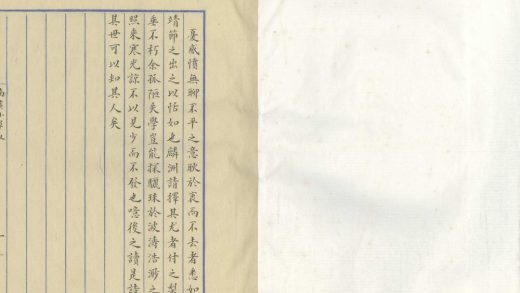 憂感憤無聊不平之意耿於衷而不去者悉如
靖節之出之以恬如也麟洲請擇其尤者付之梨
垂不朽余孤陋失學豈能探驪珠於波濤浩渺之
照來寒光諒不以見少而不發也噫後之讀是詩
其世可以知其人矣